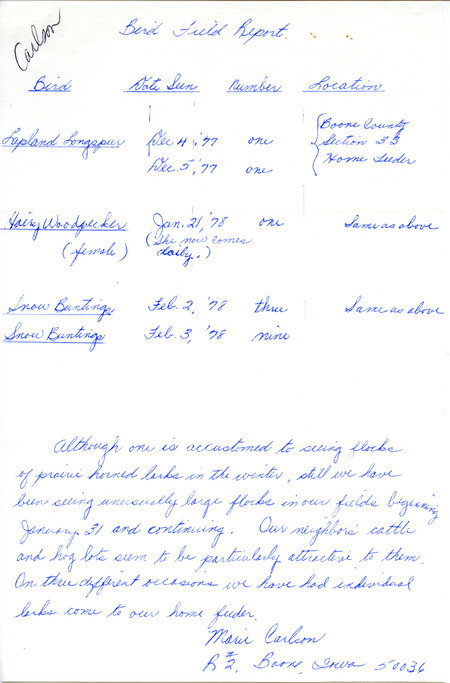 Carlson
Bird Field Report.
Bird Date Seen Number Location
Lapland Longspur Dec. 4, '77 one Boone County
Section 33
Dec. 5, '77 one Home Feeder
Hairy Woodpecker Jan. 21, '78 one Same as above
(female) (She now comes
daily.)
Snow Buntings Feb. 2, '78 three Same as above
Snow Buntings Feb. 3, '78 nine
Although one is accustomed to seeing flocks
of prairie horned larks in the winter, still we have
been seeing unusually large flocks in our fields beginning
January 31 and continuing. Our neighbors' cattle
and hog lots seem to be particularly attractive to them.
On three different occasions we have had individual
larks come to our home feeder.
Marie Carlson
R #2, Boone, Iowa 50036